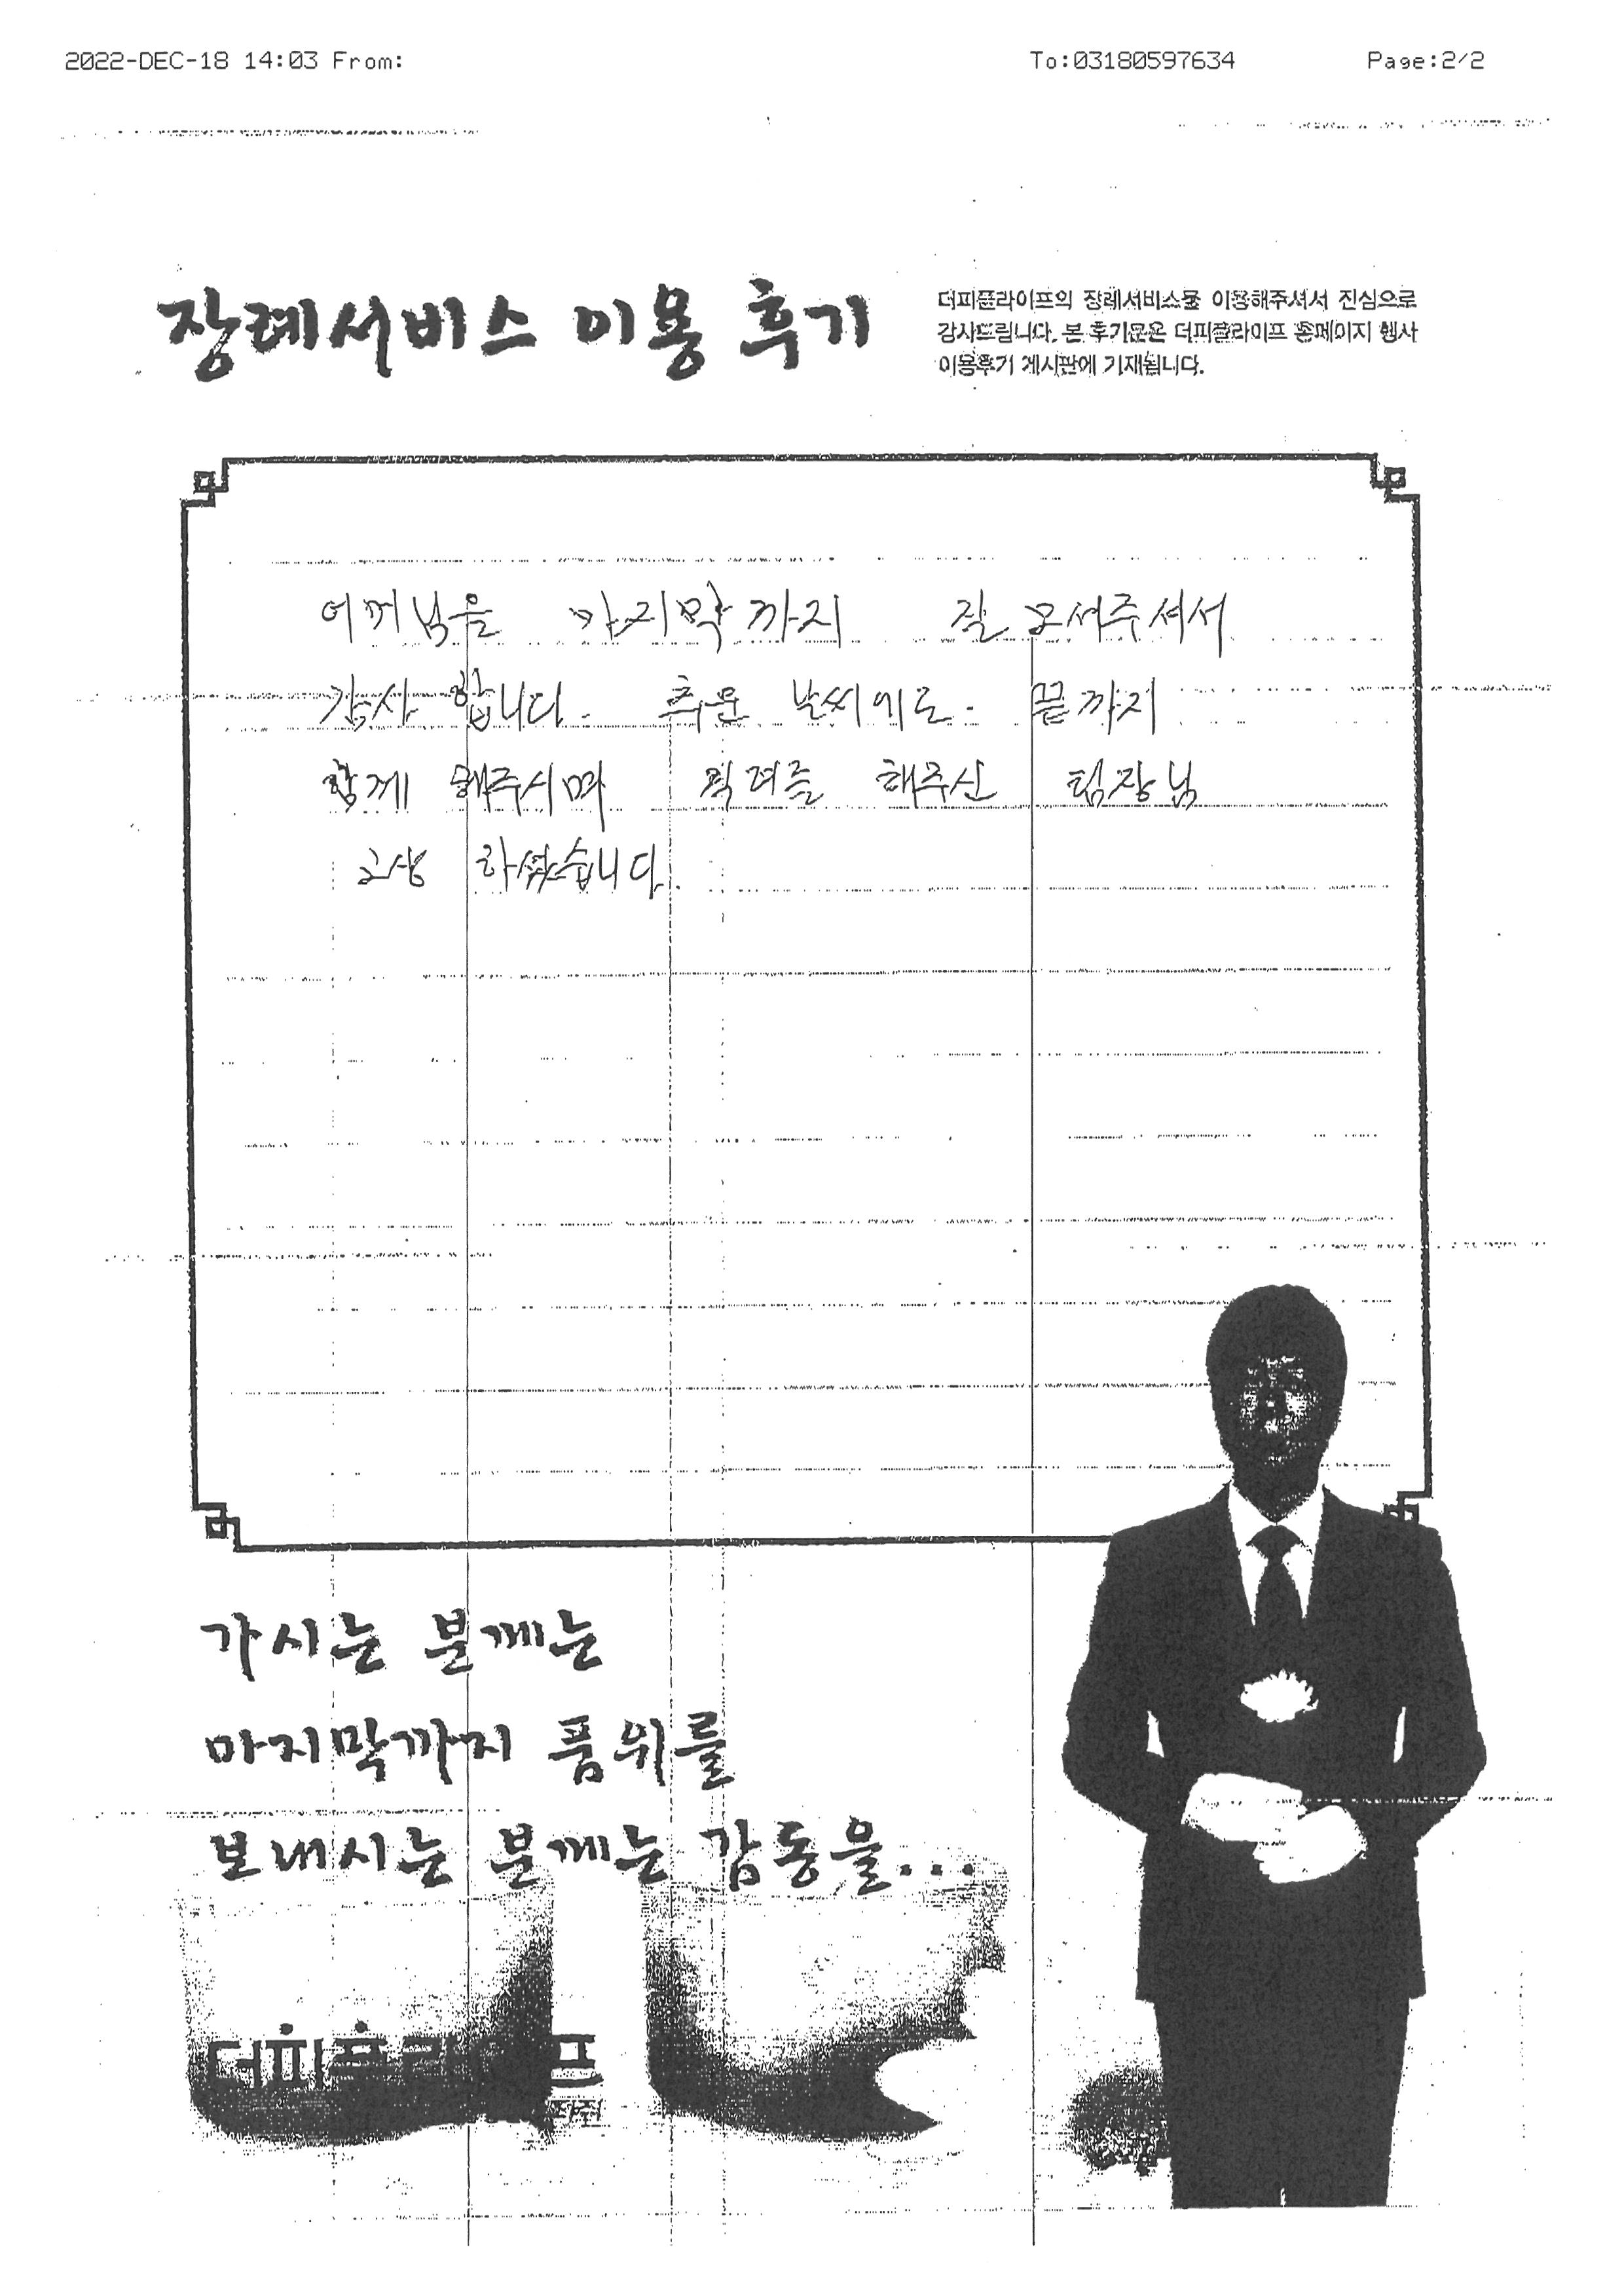 2022-DEC-18 14:03 From: To:03180597634 Page:2/2
장례서비스 이용 후기
더피플라이프의 장례서비스를 이용해주셔서 진심으로
감사드립니다. 본 후기문은 더피플라이프 홈페이지 행사
이용후기 게시판에 기재됩니다.
마지막까지 잘 모셔주셔서
감사 합니다. 추운 날씨에도. 끝까지
함께 해주시며 격려를 해주신 팀장님
고생 하셨습니다.
가시는 분께는
마지막까지 품위를
보내시는 분께는 감동을...
더피플라이프